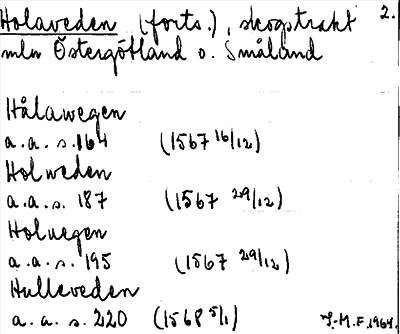 Holaveden (forts.), skogstrakt 2.
mln Östergötland o. Småland
Hålawegen
a.a.s.164 (1567 16/12)
Holweden
a.a.s. 187 (1567 29/12)
Holuegen
a.a.s. 195 (1567 29/12)
Hulleveden
a.a.s.220 (1568 5/1)
J.M.F. 1964.